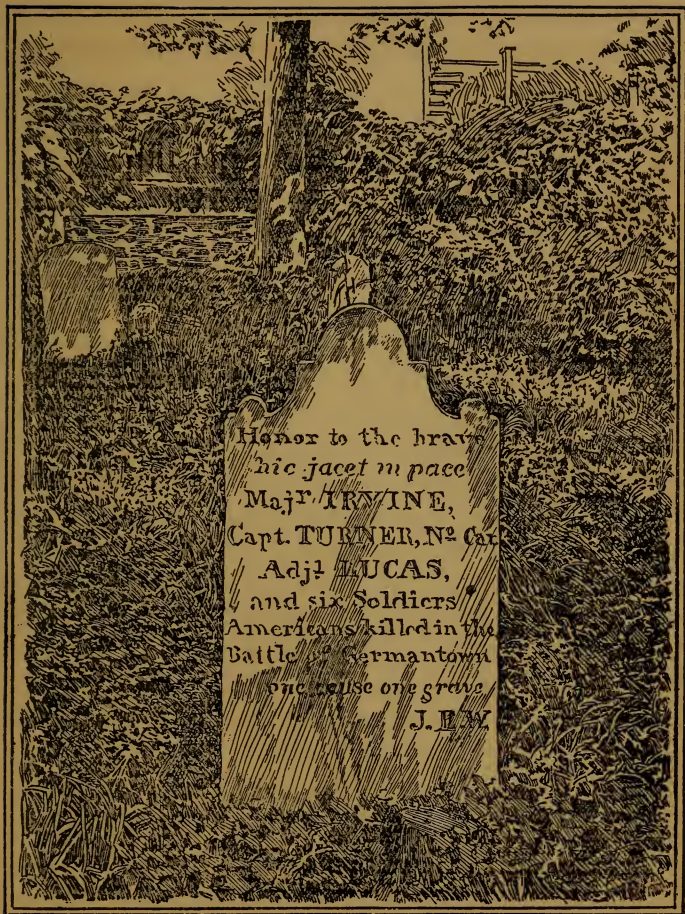 Honor to the brave
hic jacet in pace
Majr. IRVINE,
Capt. TURNER, No. Car.
Adjt. LUCAS,
and six Soldiers
Americans killed in the
Battle of Germantown
one cause one grave
J. F. W.